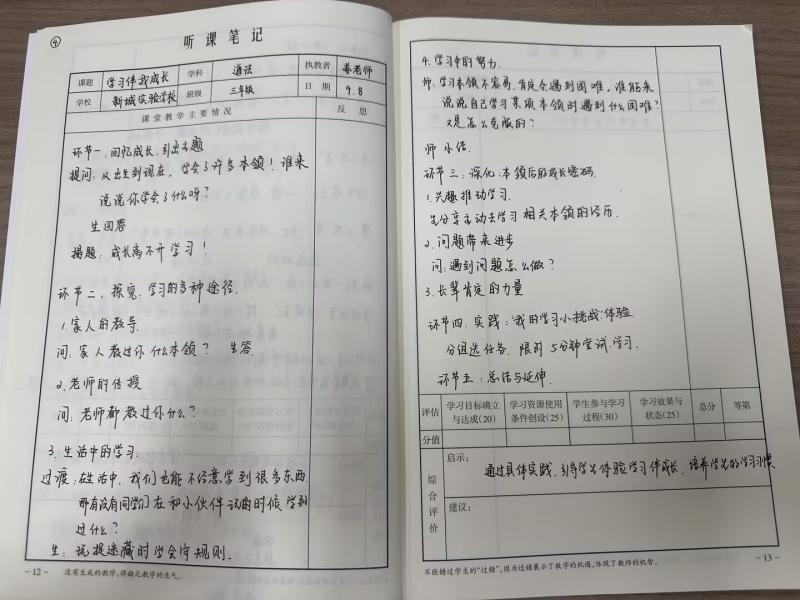 ④
听课笔记
课题 学习伴我成长 学科 道法 执教者 姜老师
学校 新城实验学校 班级 三年级 日期 9.8
课堂教学主要情况 反思
环节一:回忆成长,引出主题
提问:从出生到现在,学会了许多本领!谁来
说说你学会了什么呀?
生回答
揭题:成长离不开学习!
环节二:探究,学习的多种途径.
1.家人的教导
问:家人教过你什么本领? 生答
2.老师的传授
问:老师都教过你什么?
3.生活中的学习.
过渡:在生活中,我们也能不经意学到很多东西
那有没有同学们在和小伙伴玩的时候学到
过什么?
生:玩捉迷藏时学会守规则.
-12- 没有生成的教学,将缺乏教学的生气。
4.学习中的努力.
师:学习本领不容易,肯定会遇到困难,谁能来
说说自己学习某项本领时遇到什么困难?
又是怎么克服的?
师小结.
环节三:深化:本领后的成长密码.
1.兴趣推动学习.
生分享主动去学习相关本领的经历.
2.问题带来进步
问:遇到问题怎么做?
3.长辈肯定的力量
环节四:实践:"我的学习小挑战"体验
分组选任务,限时5分钟尝试学习.
环节五:总结与延伸.
评估 学习目标确立与达成(20) 学习资源使用条件创设(25) 学生参与学习过程(30) 学习效果与状态(25) 总分 等第
分值
综合评价
启示:
通过具体实践,引导学生体验学习伴成长,培养学生的学习习惯
建议:
不能错过学生的“过错”,因为过错展示了教学的机遇,体现了教师的机智。 -13-